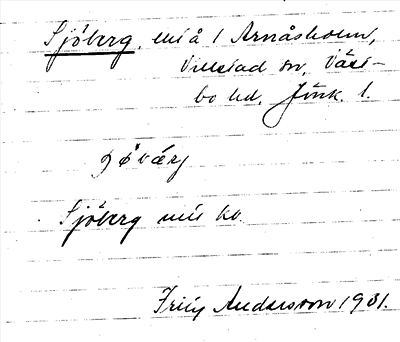 Sjöberg, miå i Arnåsholm,
Villstad sn, Väst-
bo hd, Jönk. l.
Sjöberg mis ko.
Friiß Andersson 1931.